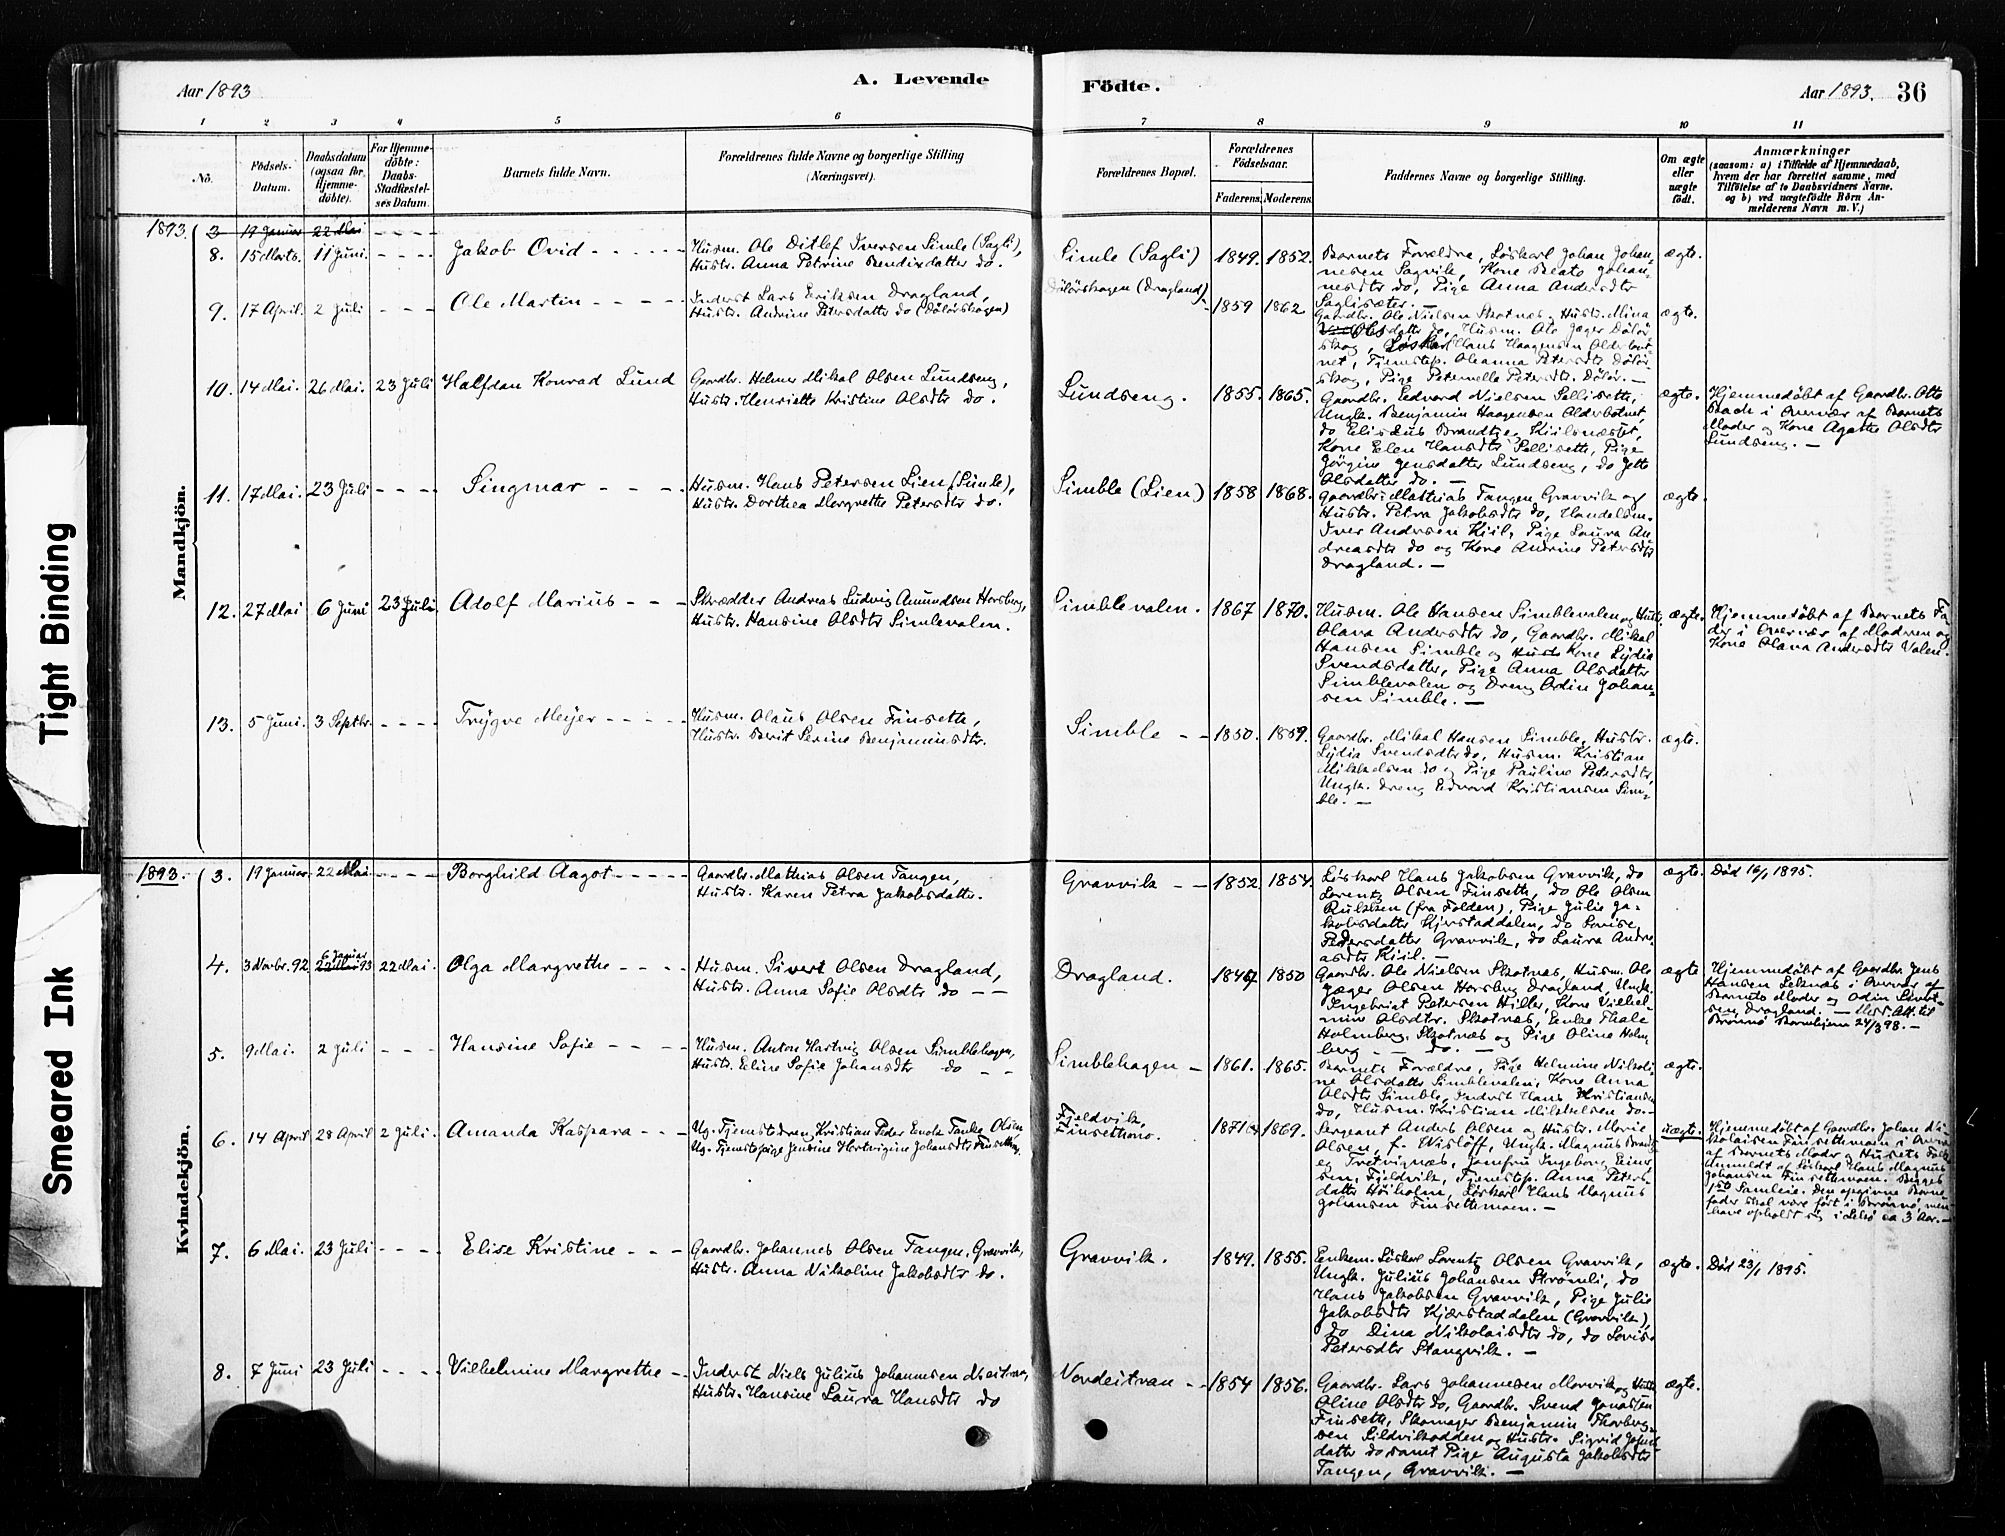 Aar 1893
A. Levende
Födte.
Aar 1893.
36
1 2 3 4 5 6 7 8 9 10 11
No.
Födsels-
Datum.
Daabsdatum
(ogsaa for
Hjemme-
döbte).
For Hjemme-
döbte:
Daabs-
Stadfæstel-
ses Datum.
Barnets fulde Navn.
Forældrenes fulde Navne og borgerlige Stilling
(Næringsvei).
Forældrenes Bopæl.
Forældrenes
Födselsaar.
Faderens.
Moderens.
Faddernes Navne og borgerlige Stilling.
Om ægte
eller
uægte
födt.
Anmærkninger
(saasom: a) i Tilfælde af Hjemmedaab,
hvem der har forrettet samme, med
Tilföielse af to Daabsvidners Navne,
og b) ved uægtefödte Börn An-
melderens Navn m. V.)
Mandkjön.
1893.
3 19 Januar 22 Mai - - - -
8. 15 Marts. 11 Juni. - - - - Jakob Ovid - - - - -
Husm. Ole Ditlef Iversen Simle (Sagli),
Hustr. Anna Petrine Bendixdatter do.
Simle (Sagli.) 1849. 1852.
Barnets Forældre, Løskarl Johan Johan-
nesen Sagvik, Kone Beate Johan-
nesdtr do, Pige Anna Andersdtr
Saglisæter. —
ægte.
9. 17 April. 2 Juli - - - Ole Martin - - - - -
Inderst Lars Eriksen Dragland,
Hustr. Andrine Petersdatter do (Dølørskogen)
Dølørskogen (Dragland) 1859 1862
Gaardbr. Ole Nielsen Skotnæs, Hustr. Mina
Olsdatter do, Husm. Ole Jæger Dølør
skog, Løskarl Hans Haagensen Olderbot-
net, Tjenstep. Oleanna Petersdtr. Dølør-
skog, Pige Peternella Petersdtr. Dølør. —
ægte.
10. 14 Mai. 26 Mai. 23 Juli Halfdan Konrad Lund
Gaardbr. Helmer Mikal Olsen Lundseng,
Hustr. Henriette Kristine Olsdtr do.
Lundseng. 1855. 1865.
Gaardbr. Edvard Nielsen Sellisette,
Ungk. Benjamin Haagensen Olderbotnet,
do Elisæus Brandtze, Kiilsnæsset,
Kone Elen Hansdtr Sellisette, Pige
Jørgine Jensdatter Lundseng, do Jette
Olsdatter do. —
ægte.
Hjemmedøbt af Gaardbr. Otto
Bach i Overvær af Barnets
Moder og Kone Agathe Olsdtr
Lundseng. —
11. 17 Mai. 23 Juli - - - - Singmar - - - -
Husm. Hans Petersen Lien (Simle),
Hustr. Dorthea Margrethe Petersdtr do.
Simble (Lien) 1858 1868.
Gaardbr. Mathias Tangen Gravvik og
Hustr. Petra Jakobsdtr do, Handelsm.
Iver Andersen Kiil, Pige Laura An-
dreasdtr do og Kone Andrine Petersdtr
Dragland. —
ægte.
12. 27 Mai 6 Juni 23 Juli Adolf Marius - - -
Skrædder Andreas Ludvig Amundsen Horsberg,
Hustr. Hansine Olsdtr Simlevalen.
Simblevalen. 1867 1870.
Husm. Ole Hansen Simblevalen og Hustr.
Olava Andersdtr do, Gaardbr. Mikal
Hansen Simble og Hustr Kone Lydia
Svendsdatter, Pige Anna Olsdatter
Simblevalen og Dreng Odin Johan-
sen Simble. —
ægte.
Hjemmedøbt af Barnets Fa-
der i Overvær af Moderen og
Kone Olava Andersdtr Valen.
13. 5 Juni. 3 Septbr. - - - - Trygve Meyer - - - - -
Husm. Olaus Olsen Finsette,
Hustr. Berit Serine Benjaminsdtr.
Simble - - 1850. 1859.
Gaardbr. Mikal Hansen Simble, Hustr.
Lydia Svendsdtr do, Husm. Kristian
Mikkelsen do og Pige Pauline Petersdtr,
Ungk. Dreng Edvard Kristiansen Sim-
ble. —
ægte.
Kvindekjön.
1893.
3. 19 Januar. 22 Mai - - - - Borghild Aagot - - - - -
Gaardbr. Mathias Olsen Tangen,
Hustr. Karen Petra Jakobsdatter.
Gravvik - - 1852 1854.
Løskarl Hans Jakobsen Gravvik, do
Lorentz Olsen Finsette, do Ole Olsen
(fra Folden), Pige Julie Ja-
kobsdatter Kjærstaddalen, do Lovise
Pedersdatter Gravvik, do Laura Andre-
asdtr Kiil. —
ægte.
Død 16/1 1895.
4. 3 Novbr. 92. 6 Januar 22 Mai 93 22 Mai. Olga Margrethe - - - -
Husm. Sivert Olsen Dragland,
Hustr. Anna Sofie Olsdtr do - -
Dragland. 1847 1850
Gaardbr. Ole Nielsen Skotnæs, Husm. Ole
Jæger Olsen Horsberg Dragland, Ungk.
Ingebrigt Petersen Hiller, Kone Vilhel-
mine Olsdtr. Skotnæs, Enke Thale
Holmberg, Skotnæs og Pige Oline Holm-
berg - - do. —
ægte
Hjemmedøbt af Gaardbr. Jens
Hansen Leknæs i Overvær af
Barnets Moder og Odin Sivert-
sen Dragland. — Udst. Att. til
Brønnø Barnehjem 24/3 98. —
5. 9 Mai. 2 Juli - - - Hansine Sofie - - - -
Husm. Anton Hartvig Olsen Simblehagen,
Hustr. Eline Sofie Johansdtr do - -
Simblehagen - 1861. 1865.
Barnets Forældre, Pige Helmine Nikoli-
ne Olsdatter Simblevalen, Kone Anna
Olsdtr Simble, Inderst Hans Kristiansen
do, Husm. Kristian Mikkelsen do. -
ægte.
6. 14 April 28 April 2 Juli. Amanda Kaspara - - -
Ug. Tjenstedreng Kristian Peder Enok Tanke Olsen
Ug. Tjenstepige Jensine Hartvigine Johansdtr Finsethmo.
Fjeldvik,
Finsethmo. 1871 1869.
Sergeant Anders Olsen og Hustr. Marie
Olsen, f. Wisløff, Ungk. Magnus
Tretvignæs, Jomfru Ingeborg Einer-
sen, Fjeldvik, Tjenestep. Anna Peters-
datter Høiholm, Løskarl Hans Magnus
Johansen Finsethmoen. —
uægte.
Hjemmedøbt af Gaardbr. Johan Ni-
kolaisen Finsethmoen i Overvær
af Barnets Moder og Husets Folk.
Anmeldt af Løskarl Hans Magnus
Johansen Finsethmoen. Begges
1ste Samleie. Den opgivne Barne-
fader skal være født i Brønnø, men
have opholdt sig i Lekø ca 3 Aar. —
7. 6 Mai. 23 Juli - - - - Elise Kristine - - -
Gaardbr. Johannes Olsen Tangen, Gravvik,
Hustr. Anna Nikoline Jakobsdtr do.
Gravvik. 1849. 1855.
Enkem. Løskarl Lorentz Olsen Gravvik,
Ungk. Julius Johansen Strømli, do
Hans Jakobsen Gravvik, Pige Julie
Jakobsdtr Kjærstaddalen (Gravvik),
do Dina Nikolaisdtr do, do Lovise
Petersdtr Stangvik. —
ægte.
Død 23/1 1895.
8. 7 Juni 23 Juli - - - - Vilhelmine Margrethe - -
Inderst Niels Julius Johannesen
Hustr. Hansine Laura Hansdtr do
Nordeitran - - 1854 1856.
Gaardbr. Lars Johannesen Morvik og Hustr.
Oline Olsdtr do, Gaardbr. Svend Jonassen
Finsette, Skomager Benjamin Thorberg-
sen Sildvikodden og Hustr. Sigrid
datter do samt Pige Augusta Jakobsdtr
Tangen, Gravvik. —
ægte.
Tight Binding
Smeared Ink